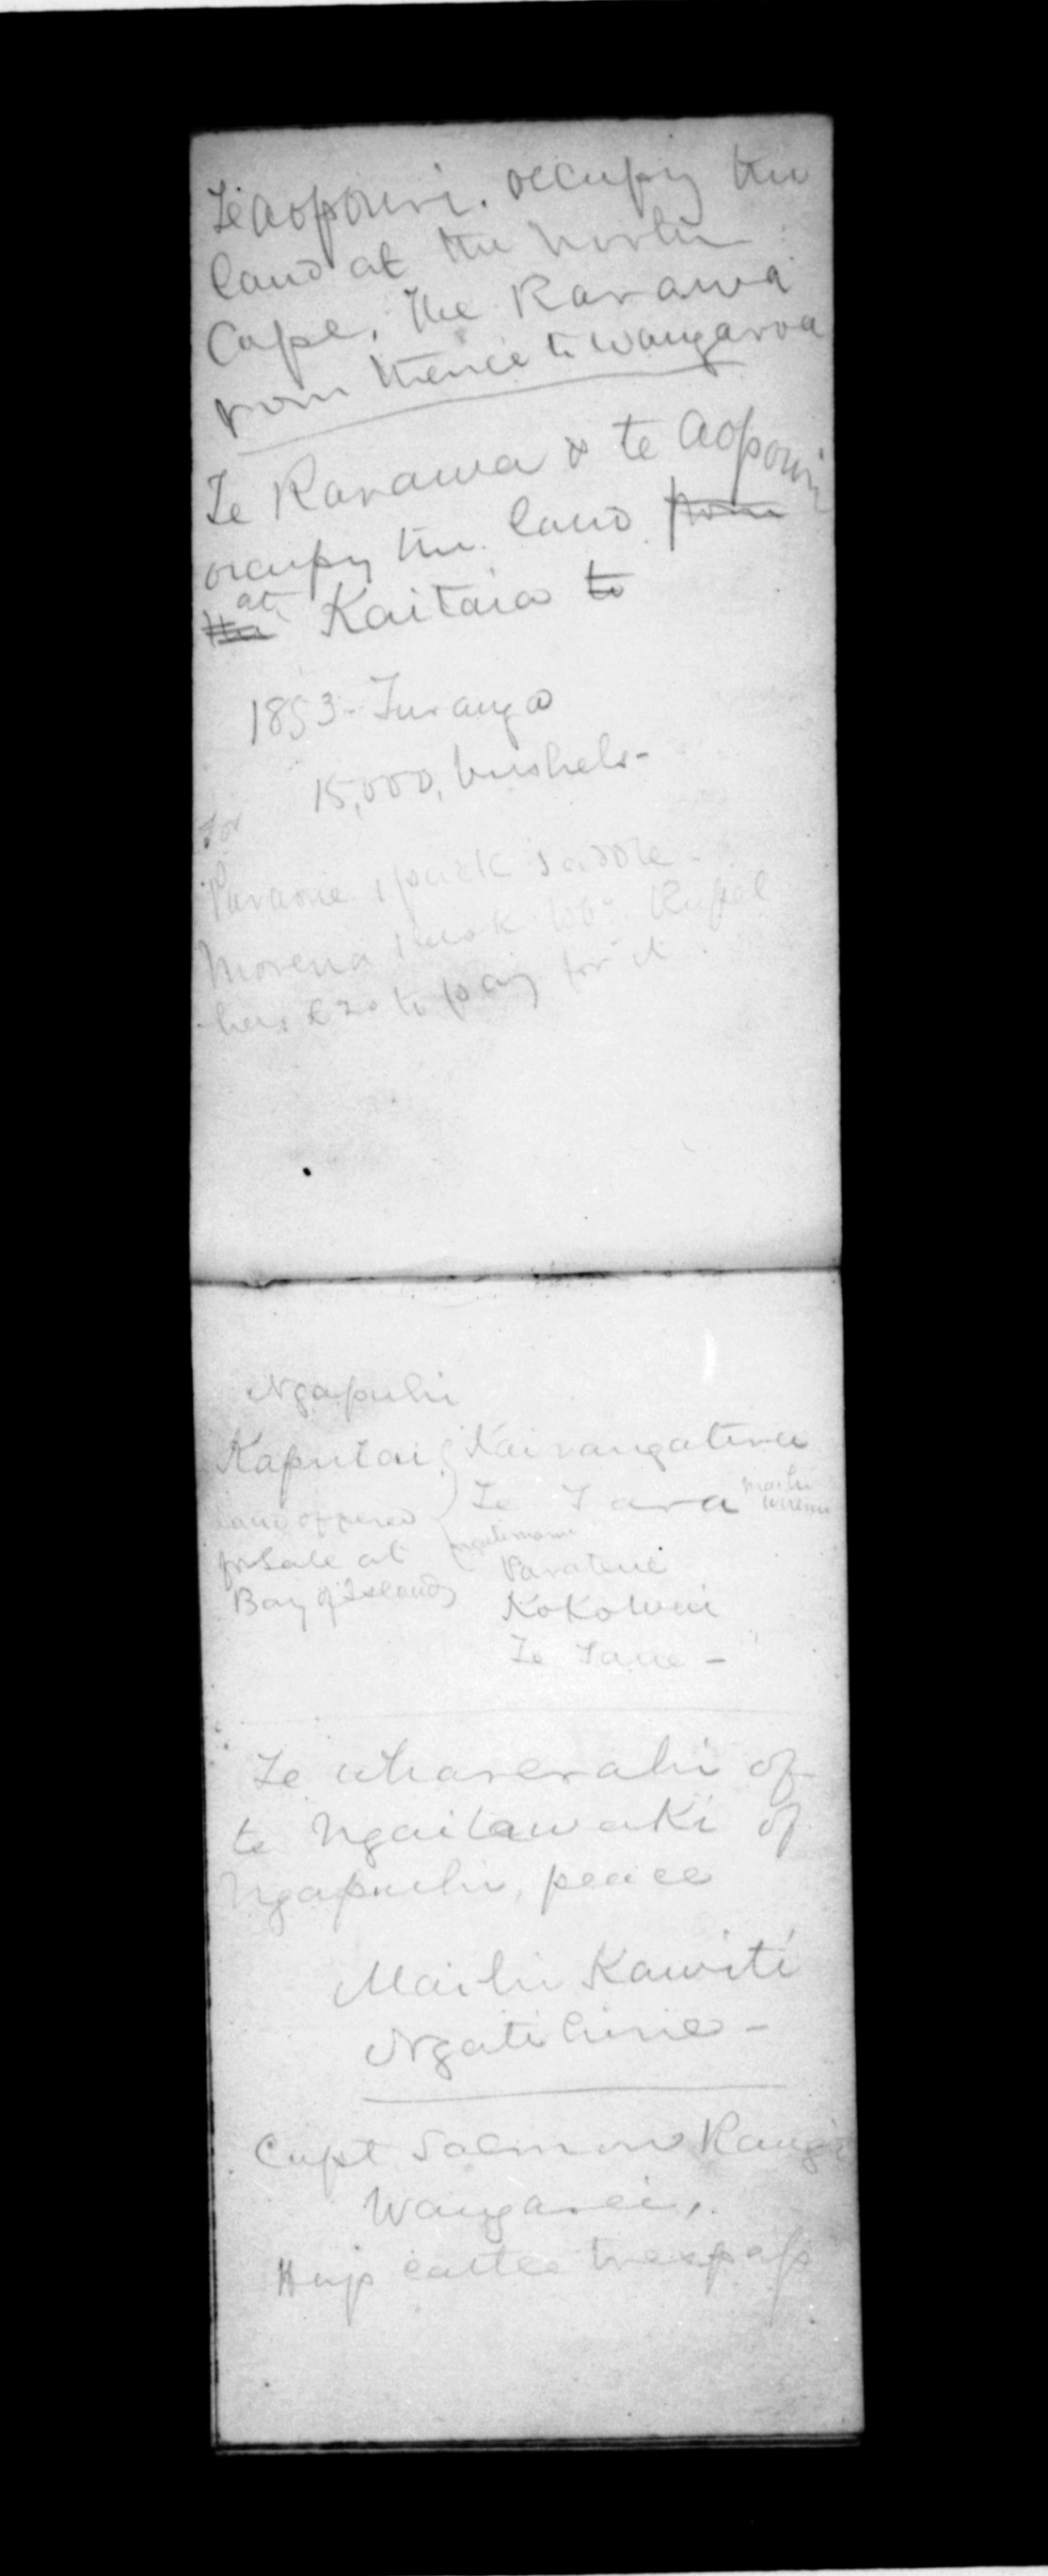 Te Aopouri. occupy the
land at the North
Cape, The Rarawa
from thence to Wangaroa
Te Rarawa & te Aopouri
occupy the land from
the at Kaitaia to
1853 - Turanga
15,000, bushels -
For
Paraone 1 pack saddle -
Morena
has £20 to pay for it.
Ngapuhi
Kaputai Kairangatira
Te Tara Maihi
land offered
for Sale at Ngatimanu
Bay of Islands Paratene
Kokowai
Te Tane -
Te Wharerahi of
te Ngaitawaki of
Ngapuhi, peace
Maihi Kawiti
Ngatihine -
Capt Salmon Rangi
Wangarei,
cattle trespass